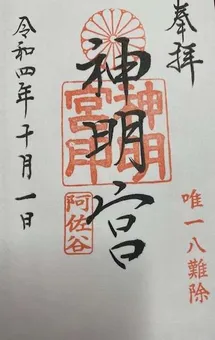 奉拝
唯一八難除
神明宮
神明
宮印
阿佐谷
令和四年十月一日